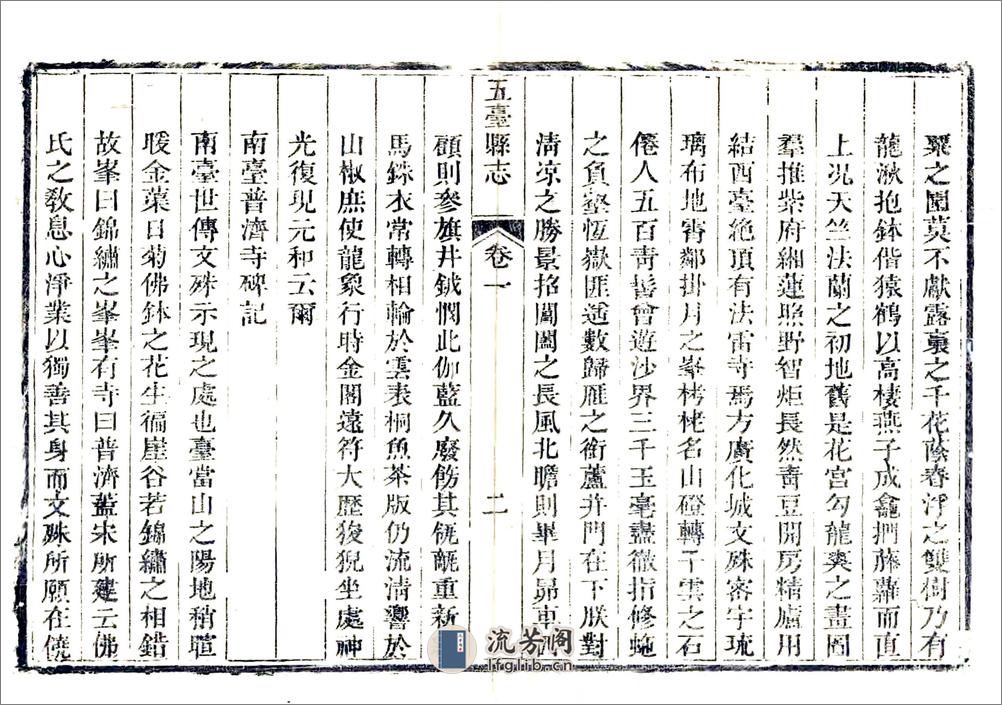 聚之園莫不獻露裛之千花蔭春浮之雙樹乃有
龍湫抱鉢偕猿鶴以高棲燕子成龕捫藤蘿而直
上况天竺法蘭之初地舊是花宮勾龍爽之畫圖
羣推紫府緗蓮照野智炬長然靑豆開房精廬用
結西臺絶頂有法雷寺焉方廣化城文殊宻宇琉
璃布地霄鄰掛月之峯栲栳名山磴轉千雲之石
僊人五百靑髻曾遊沙界三千玉毫盡徹指修虵
之負壑恆嶽匪遥數歸雁之銜蘆井門在下朕對
淸凉之勝景招閶闔之長風北瞻則畢月昴車
五臺縣志
卷一
二
顧則參旗井鉞憫此伽藍久廢飭其瓴甋重新
馬銖衣常轉相輪於雲表桐魚茶版仍流淸響於
山椒庶使龍象行時金閣遠符大歷狻猊坐處神
光復現元和云爾
南臺普濟寺碑記
南臺世傳文殊示現之處也臺當山之陽地稍暄
暖金菜日菊佛鉢之花生徧崖谷若錦繡之相錯
故峯曰錦繡之峯峯有寺曰普濟葢宋所建云佛
氏之敎息心淨業以獨善其身而文殊所願在饒
流芳阁
lfglib.cn